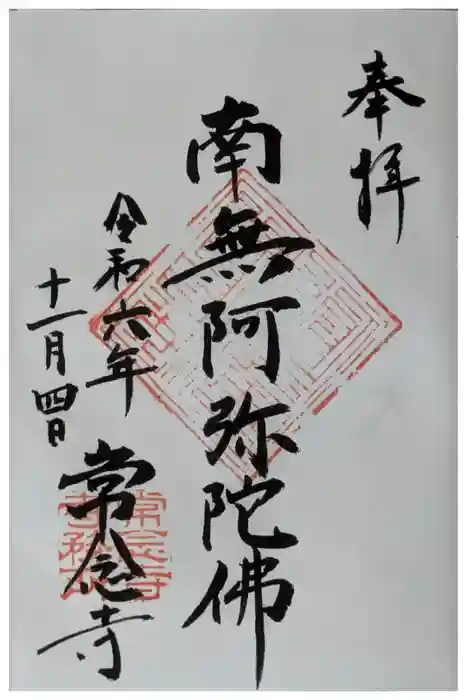 奉拝
南無阿弥陀佛
令和六年
十一月四日
常念寺